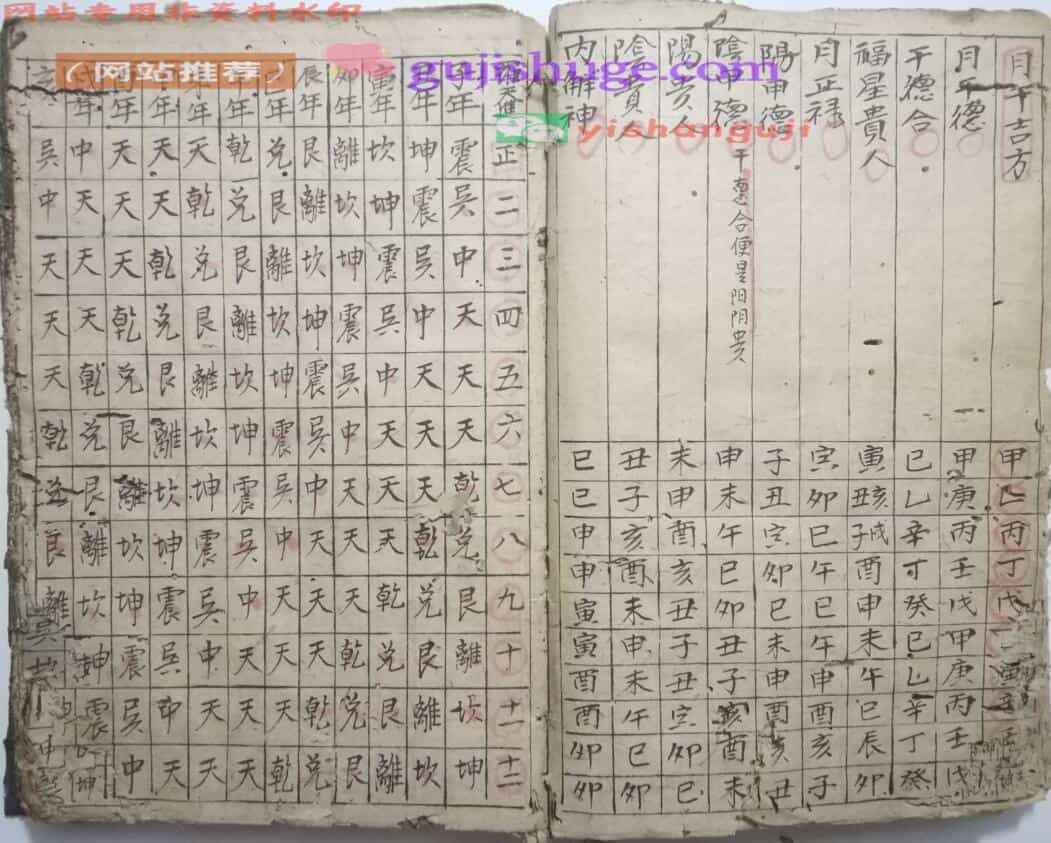 网站专用非资料水印
（网站推荐）
gujishuge.com
yishanguji
月干吉方 甲乙丙丁戊
月干德 甲庚丙壬戊甲庚丙壬戊
干德合 己乙辛丁癸己乙辛丁癸
福星貴人 寅丑亥子戌酉申未午巳辰卯
月正禄 寅卯巳午巳午申酉亥子
陽田德 子丑寅卯巳未申酉亥丑
陰田德 申未午巳卯丑子亥酉未
干德合便是阳阴贵
陽貴人 未申酉亥丑子丑寅卯巳
陰貴人 丑子亥酉未申未午巳卯
内解神 巳巳申申寅寅酉酉卯卯
正二三四五六七八九十十一十二
子年 震吳中天天天乾兑艮離坎坤
年 坤震吳中天天天乾兑艮離坎
寅年 坎坤震吳中天天天乾兑艮離
卯年 離坎坤震吳中天天天乾兑艮
辰年 艮離坎坤震吳中天天天乾兑
巳年 兑艮離坎坤震吳中天天天乾
年 乾兑艮離坎坤震吳中天天天
年 天乾兑艮離坎坤震吳中天天
年 天天乾兑艮離坎坤震吳中天
酉年 天天天乾兑艮離坎坤震吳中
戌年 中天天天乾兑艮離坎坤震
亥 吳中天天天乾兑艮離坎